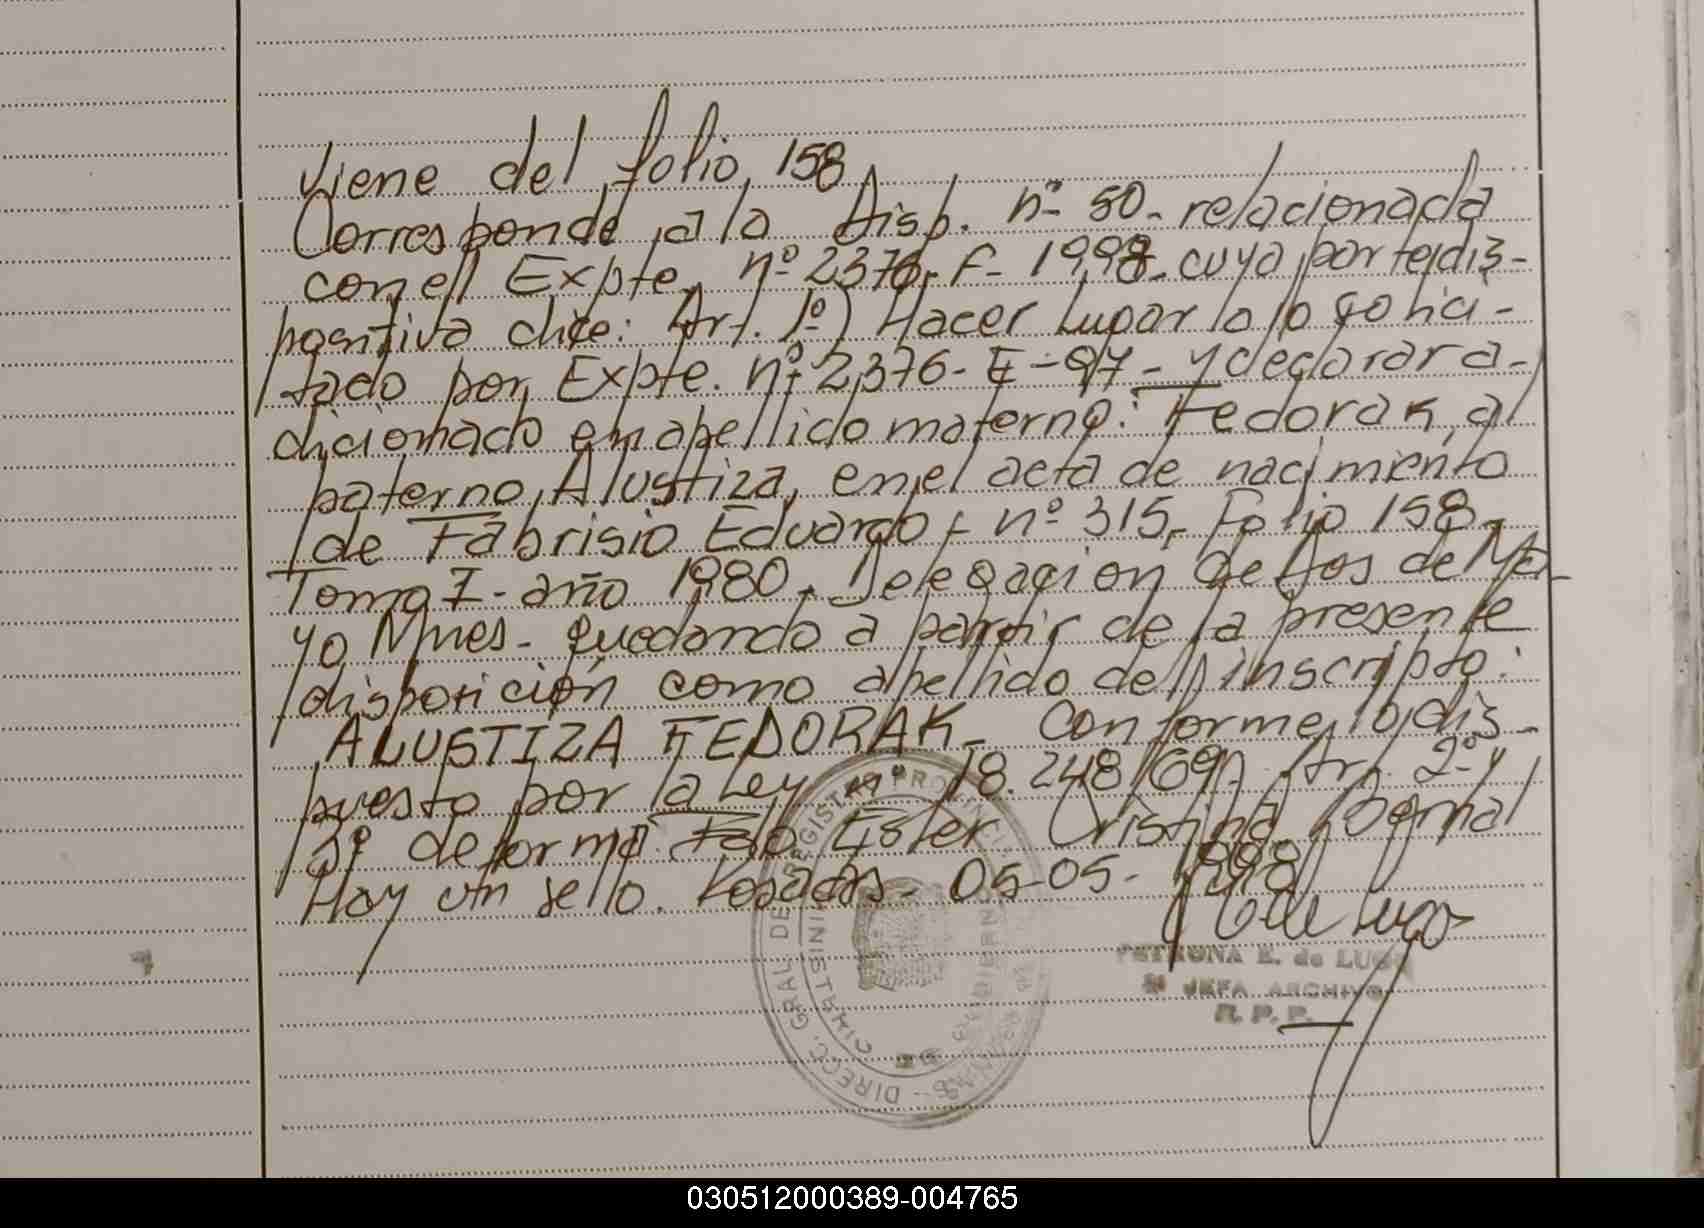 Viene del folio 158
Corresponde a la Disp. nº 50- relacionada
con el Expte. nº 2376- F- 1998- cuya parte dis-
positiva dice: Art. 1º) Hacer lugar a lo solici-
tado por Expte. nº 2376- F-97- y declarar a-
dicionado en apellido materno: Fedorak, al
paterno Alustiza, en el acta de nacimiento
de Fabrisio Eduardo- nº 315- Folio 158-
Tomo I- año 1980- Delegacion de Dos de Ma-
yo Mnes- quedando a partir de la presente
disposición como apellido del inscripto:
ALUSTIZA FEDORAK- Conforme lo dis-
puesto por la Ley nº 18.248/69- Art. 2º y
3º de forma Fdo Ester Cristina Bernal
Hay un sello. Posadas- 05-05- 1998
PETRONA E. de LUGO
JEFA ARCHIVO
R. P. P.
DIRECC. GRAL DE REGISTRO PROVINCIAL
030512000389-004765